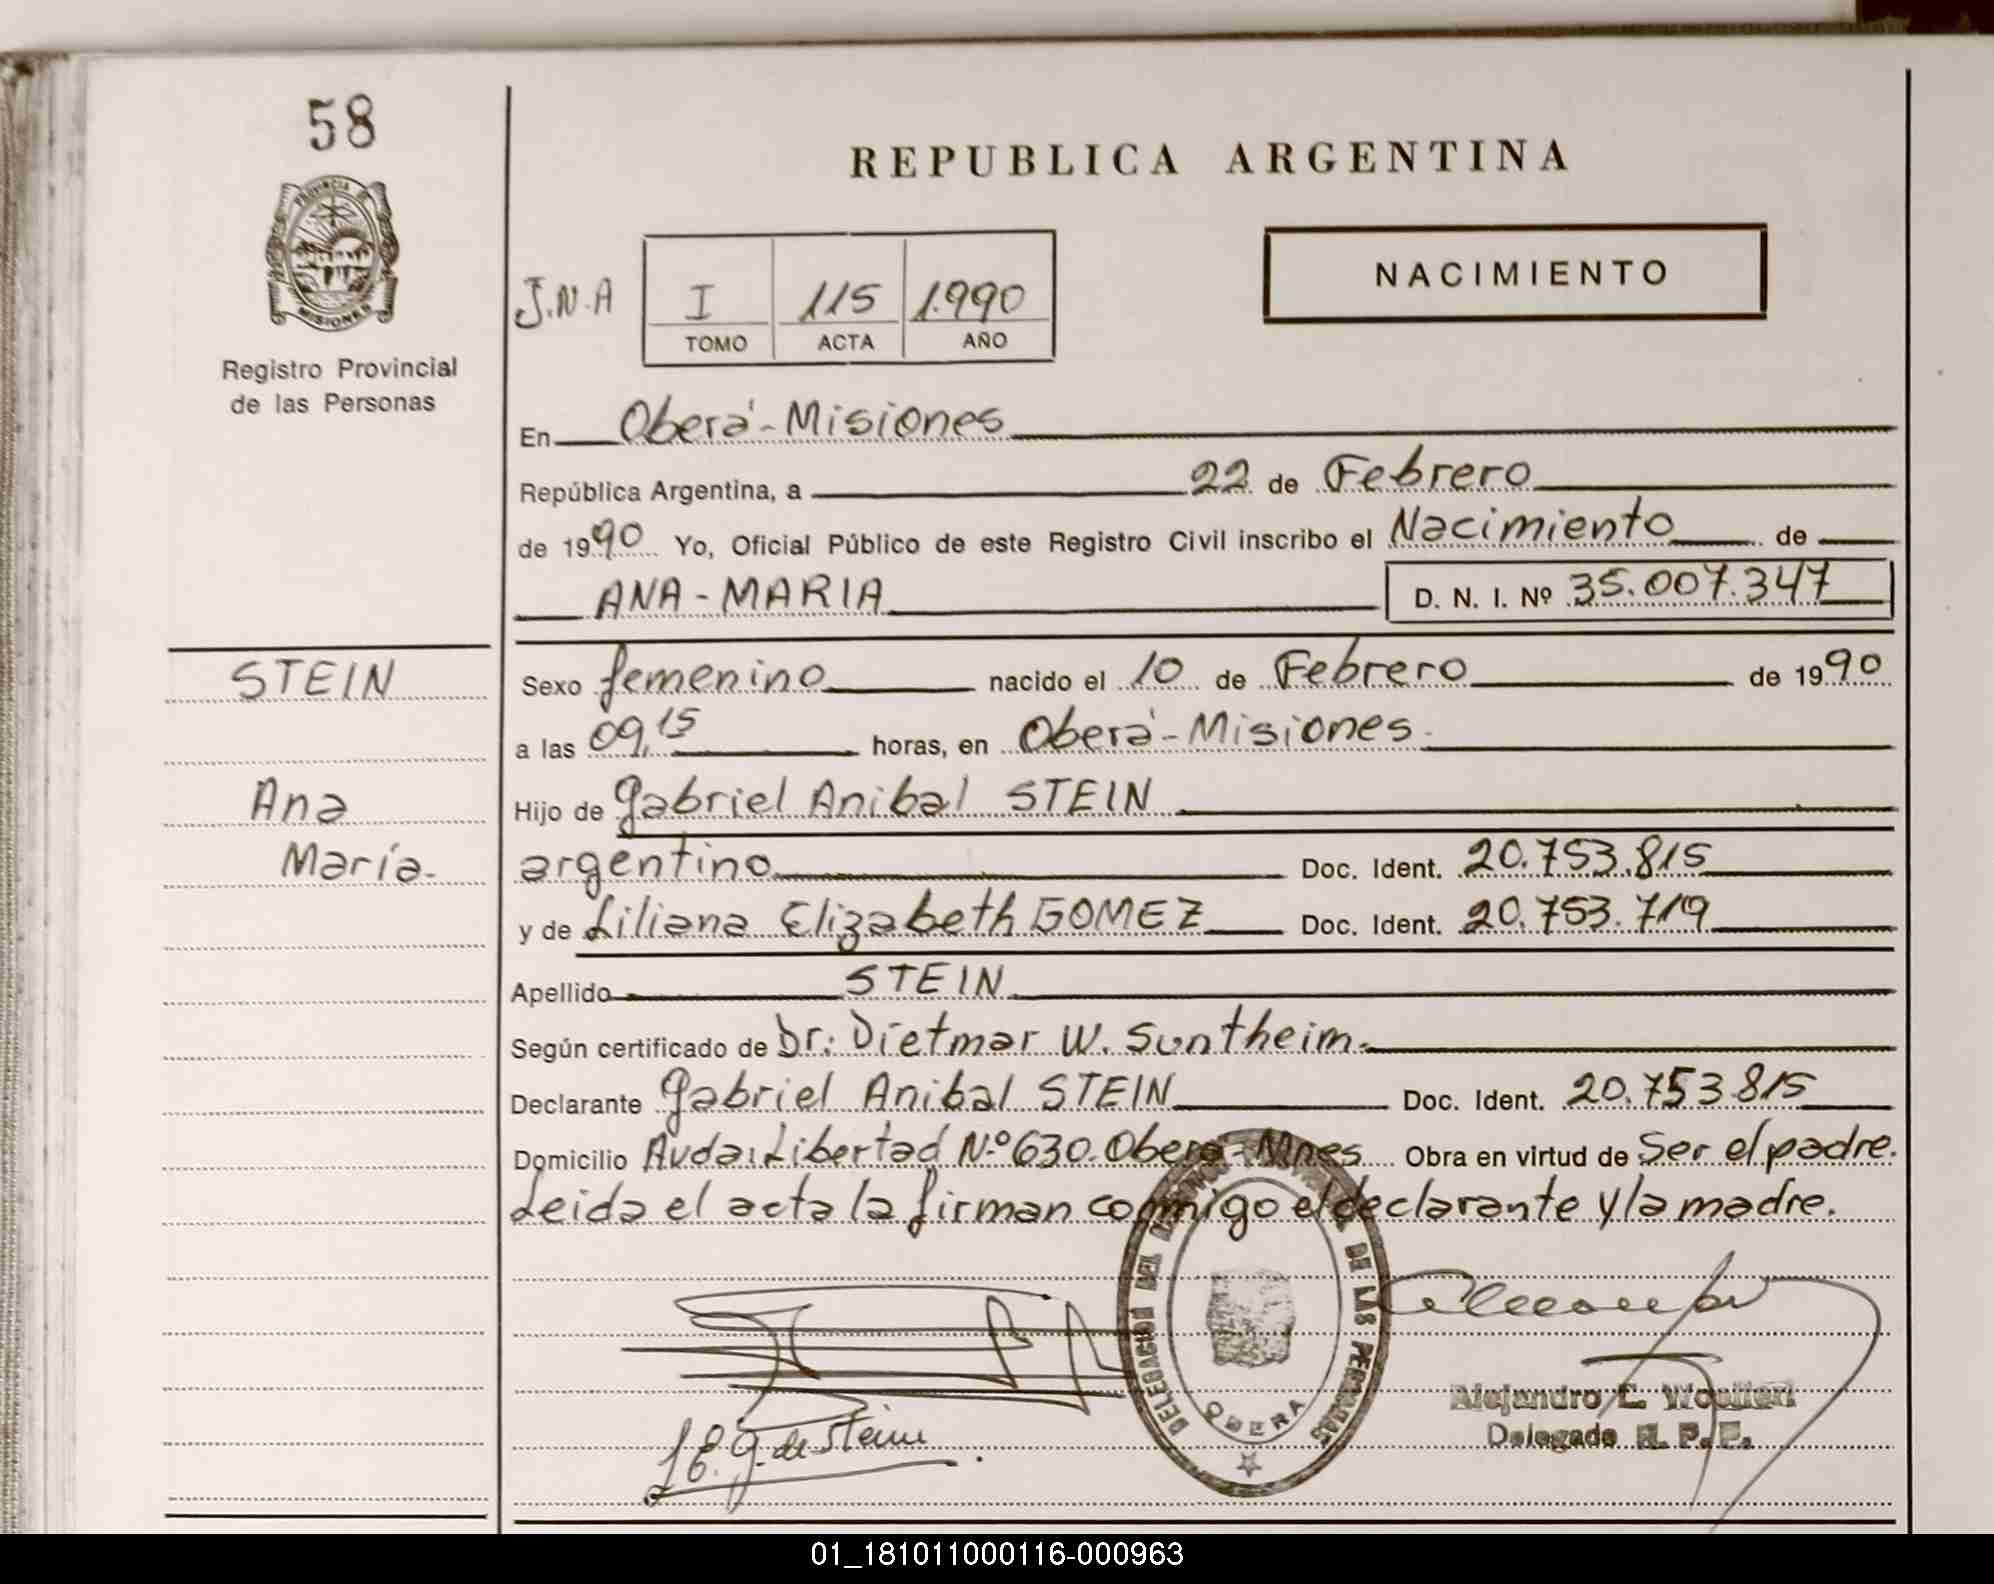 58
PROVINCIA DE
MISIONES
Registro Provincial
de las Personas
REPUBLICA ARGENTINA
J.N.A
I 115 1.990
TOMO ACTA AÑO
NACIMIENTO
En Oberá-Misiones
República Argentina, a 22 de Febrero
de 1990 Yo, Oficial Público de este Registro Civil inscribo el Nacimiento de
ANA-MARIA D. N. I. Nº 35.007.347
STEIN
Ana
María.
Sexo femenino nacido el 10 de Febrero de 1990
a las 09,15 horas, en Oberá-Misiones.
Hijo de Gabriel Anibal STEIN
argentino Doc. Ident. 20.753.815
y de Liliana Elizabeth GOMEZ Doc. Ident. 20.753.719
Apellido STEIN
Según certificado de Dr. Dietmar W. Suntheim.
Declarante Gabriel Anibal STEIN Doc. Ident. 20.753.815
Domicilio Avda. Libertad N.º 630. Oberá-Mnes Obra en virtud de Ser el padre.
Leida el acta la firman conmigo el declarante y la madre.
DELEGACION DEL DE LAS PERSONAS
OBERA
L E. G. de Stein.
Delegado R. P. P.
01_181011000116-000963